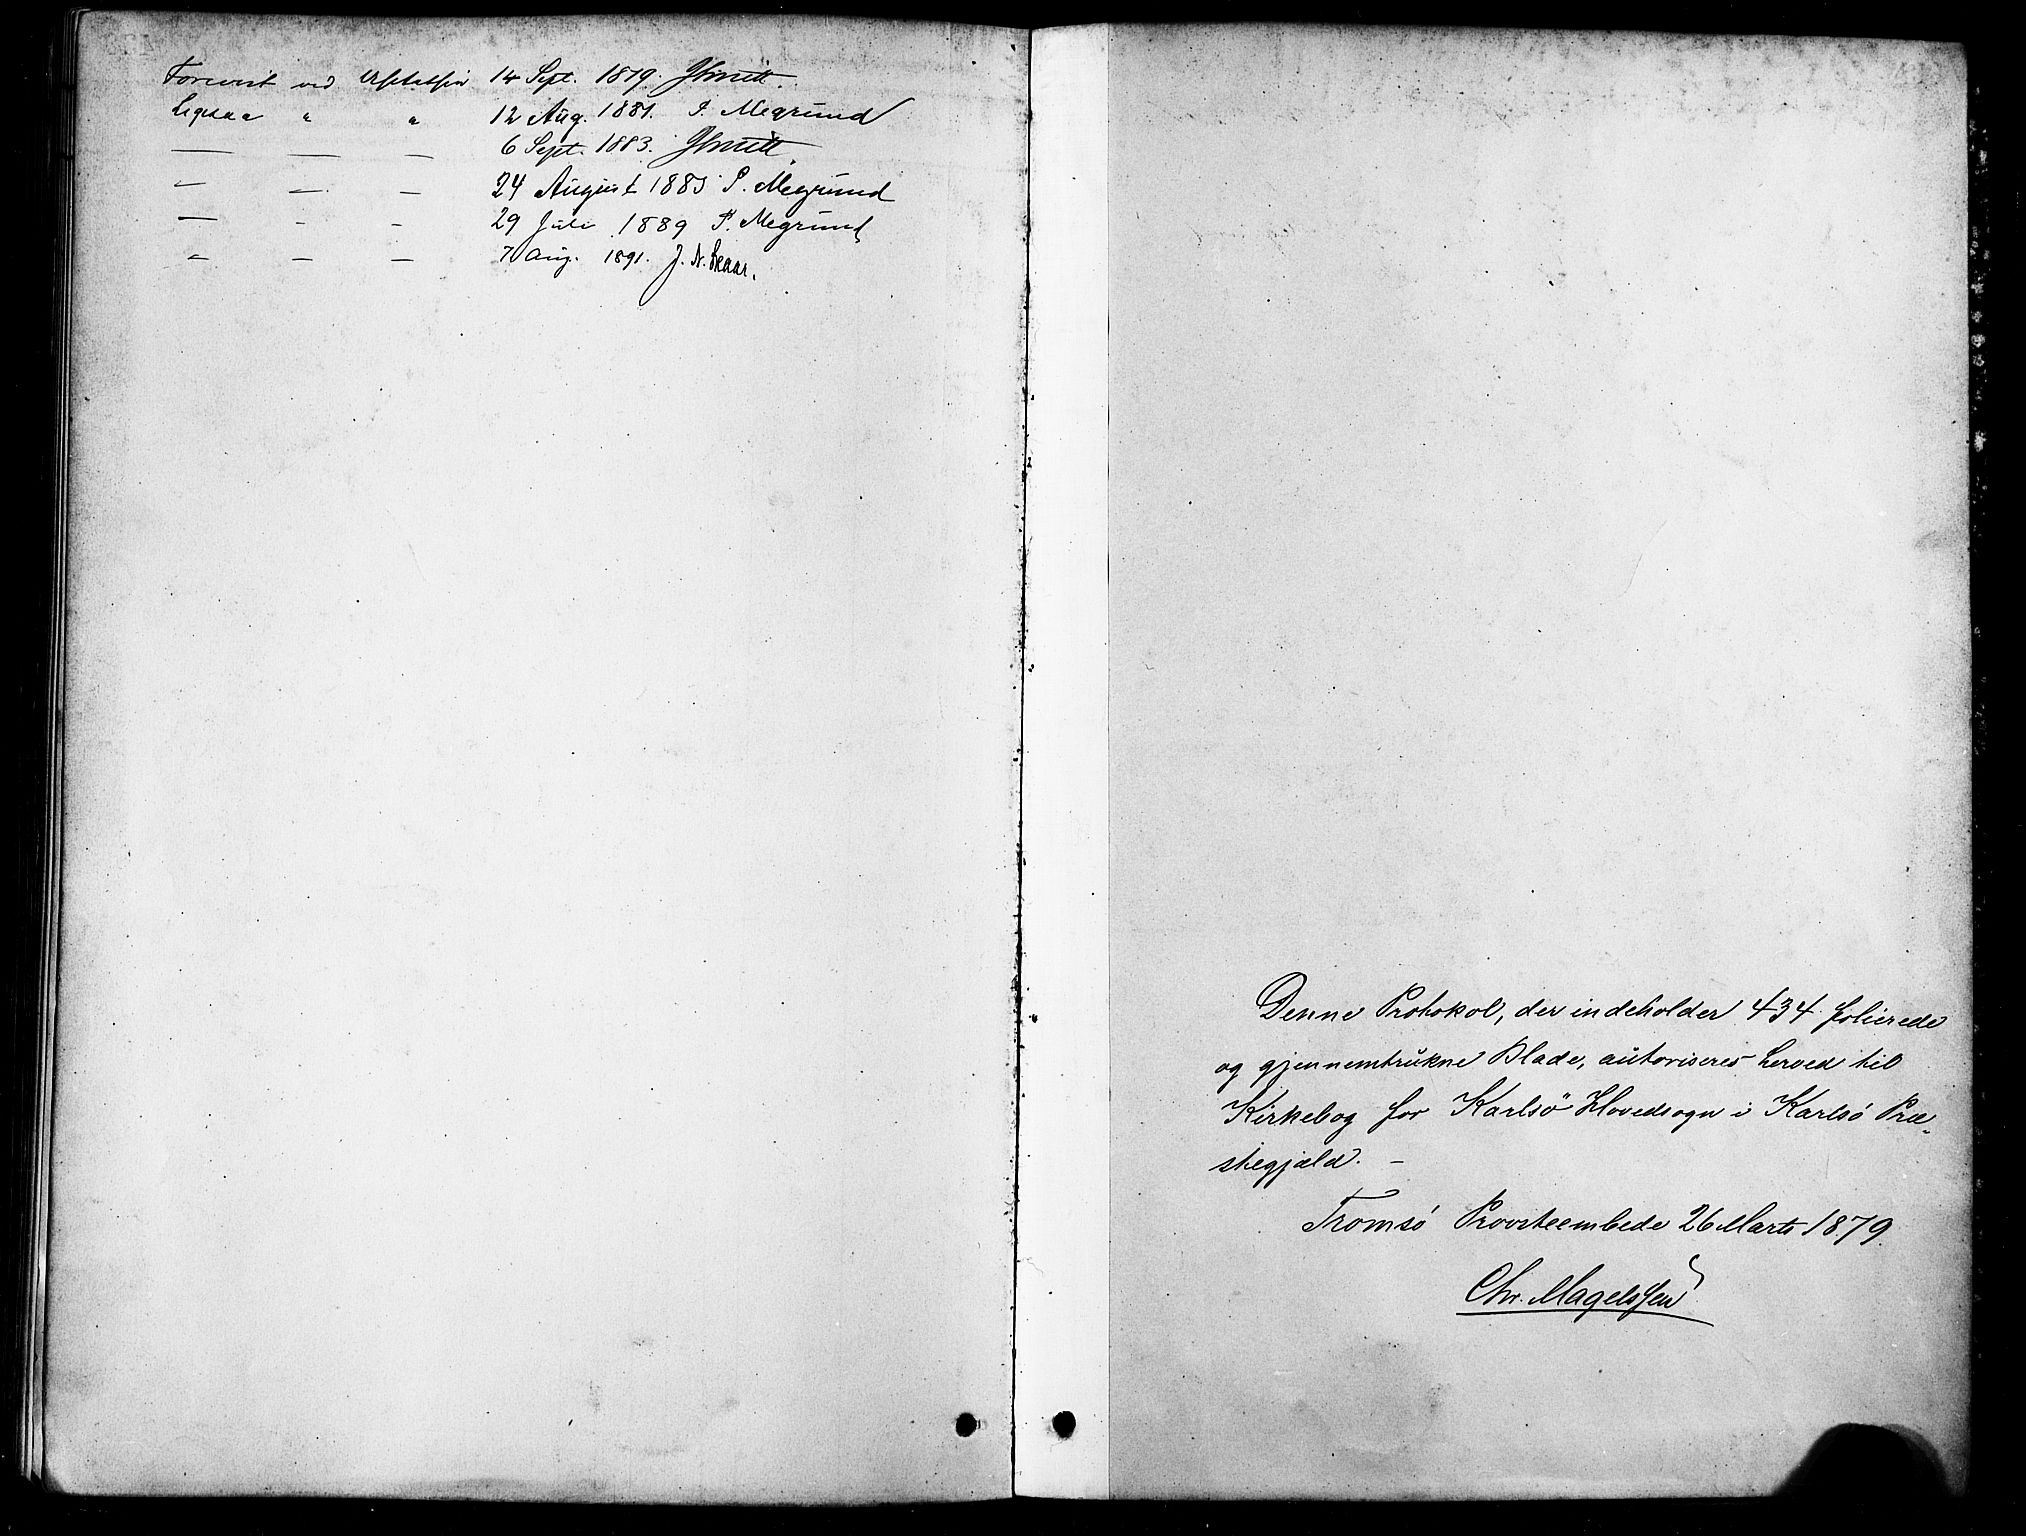 Forevist ved Visitatsen 14 Sept. 1879. JSmitt.
Ligesaa " " 12 Aug. 1881. P. Megrund
— — — 6 Sept. 1883. JSmitt.
— — — 24 August 1885 P. Megrund
— - - 29 Juli 1889 P. Megrund
" — — 7 Aug. 1891. J. N. Skaar.
Denne Protokol, der indeholder 434 folierede
og gjennemtrukne Blade, autoriseres herved til
Kirkebog for Karlsö Hovedsogn i Karlsö Præ-
stegjæld. —
Tromsö Provsteembede 26 Marts 1879.
Chr. Magelssen